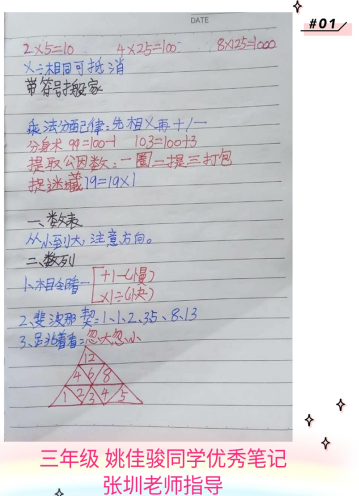 #01
DATE
2×5=10 4×25=100 8×125=1000
×÷相同可抵消
带符号搬家
乘法分配律:先相×再+/-
分身术 99=100-1 103=100+3
提取公因数:一圈二提三打包
捉迷藏 19=19×1
一、数表
从小到大,注意方向。
二、数列
1、相邻看 +1-(慢)
×1÷(快)
2、斐波那契:1、1、2、3、5、8、13
3、忽大忽小
12
4 6 8
1 2 3 4 5
三年级 姚佳骏同学优秀笔记
张圳老师指导